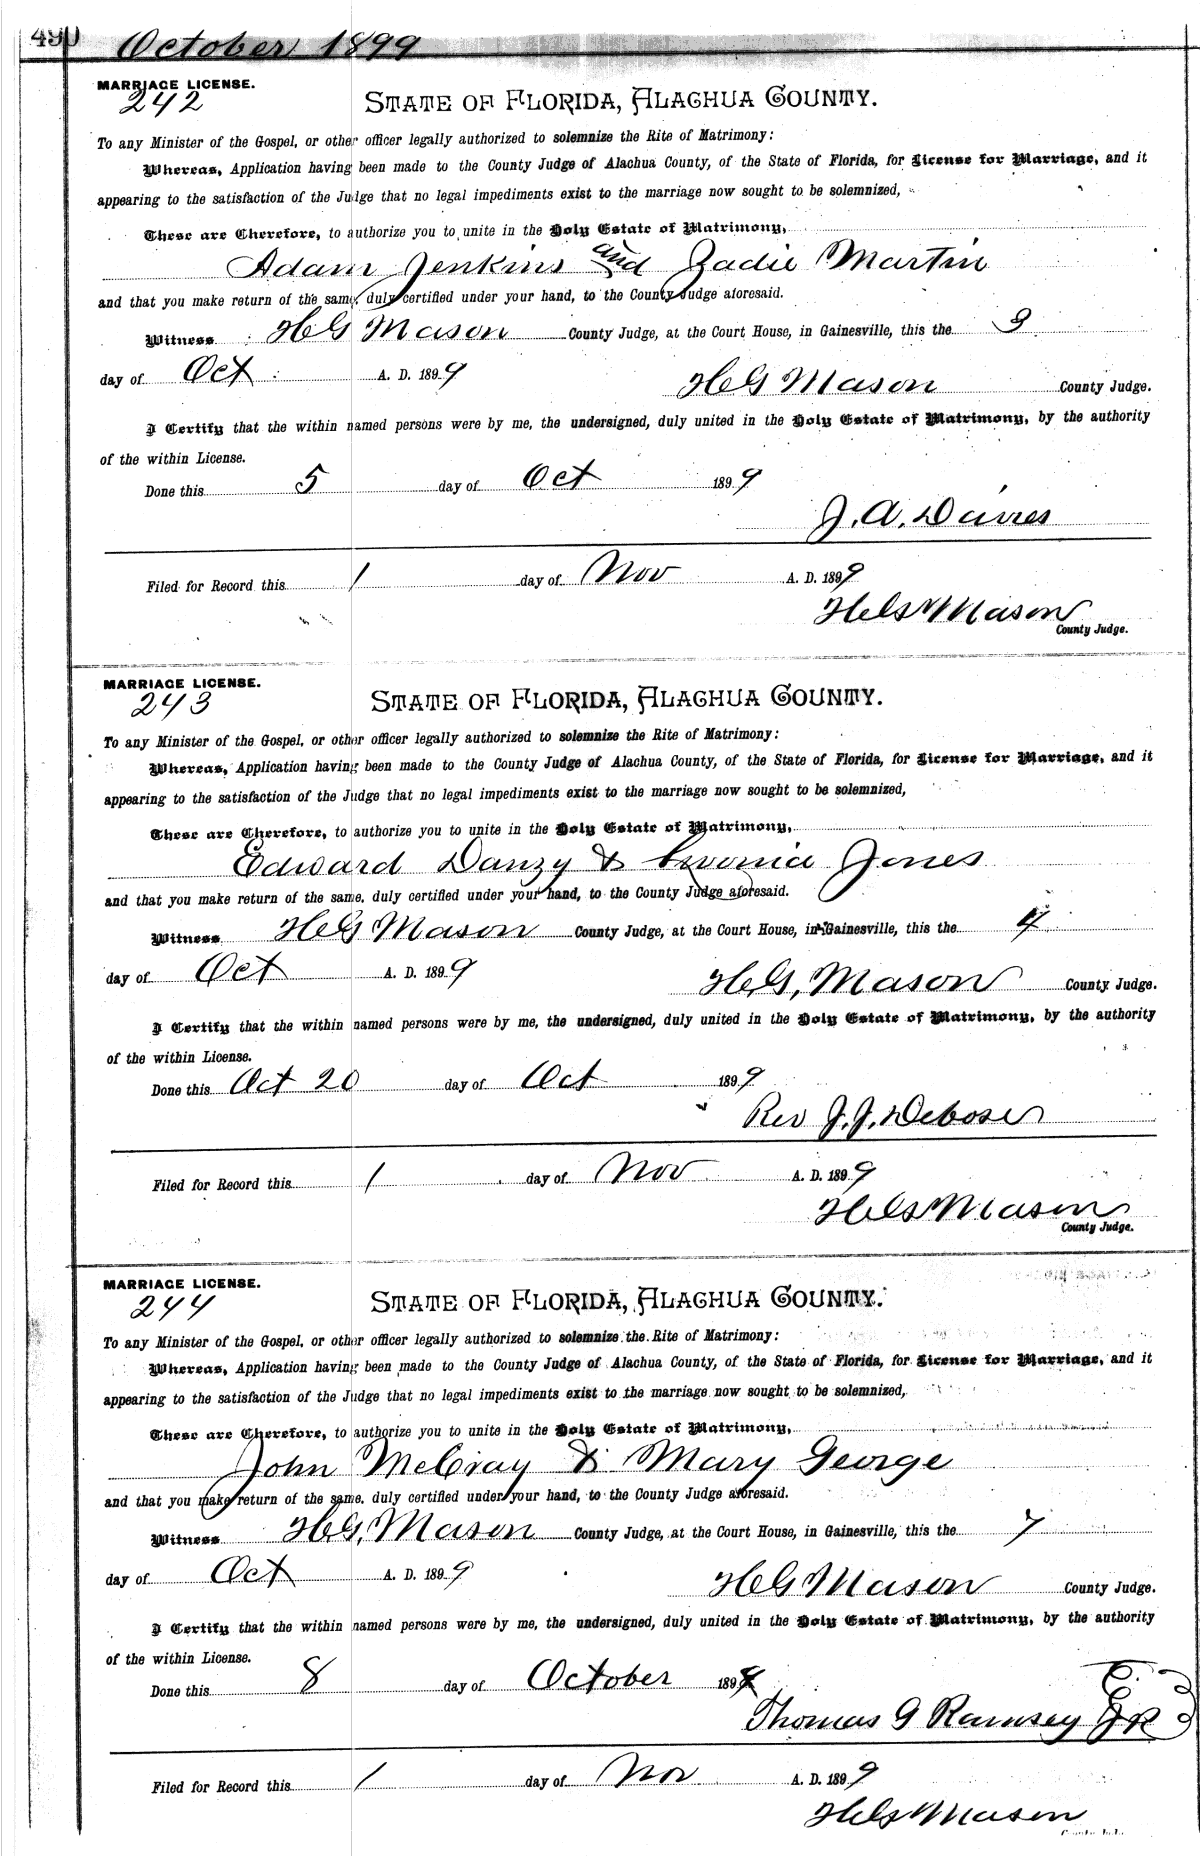 490 October 1899
MARRIAGE LICENSE.
242
STATE OF FLORIDA, ALACHUA COUNTY.
To any Minister of the Gospel, or other officer legally authorized to solemnize the Rite of Matrimony:
Whereas, Application having been made to the County Judge of Alachua County, of the State of Florida, for License for Marriage, and it
appearing to the satisfaction of the Judge that no legal impediments exist to the marriage now sought to be solemnized,
These are Therefore, to authorize you to unite in the Holy Estate of Matrimony,
Adam Jenkins and Zadie Martin
and that you make return of the same, duly certified under your hand, to the County Judge aforesaid.
Witness H G Mason County Judge, at the Court House, in Gainesville, this the 3
day of Oct A. D. 1899
H G Mason County Judge.
I Certify that the within named persons were by me, the undersigned, duly united in the Holy Estate of Matrimony, by the authority
of the within License.
Done this 5 day of Oct 1899
J. A. Davies
Filed for Record this 1 day of Nov A. D. 1899
H G Mason
County Judge.
MARRIAGE LICENSE.
243
STATE OF FLORIDA, ALACHUA COUNTY.
To any Minister of the Gospel, or other officer legally authorized to solemnize the Rite of Matrimony:
Whereas, Application having been made to the County Judge of Alachua County, of the State of Florida, for License for Marriage, and it
appearing to the satisfaction of the Judge that no legal impediments exist to the marriage now sought to be solemnized,
These are Therefore, to authorize you to unite in the Holy Estate of Matrimony,
Edward Danzy & Jones
and that you make return of the same, duly certified under your hand, to the County Judge aforesaid.
Witness H G Mason County Judge, at the Court House, in Gainesville, this the 4
day of Oct A. D. 1899
H, G, Mason County Judge.
I Certify that the within named persons were by me, the undersigned, duly united in the Holy Estate of Matrimony, by the authority
of the within License.
Done this Oct 20 day of Oct 1899
Rev J. J. Deboser
Filed for Record this 1 day of Nov A. D. 1899
H G Mason
County Judge.
MARRIAGE LICENSE.
244
STATE OF FLORIDA, ALACHUA COUNTY.
To any Minister of the Gospel, or other officer legally authorized to solemnize the Rite of Matrimony:
Whereas, Application having been made to the County Judge of Alachua County, of the State of Florida, for License for Marriage, and it
appearing to the satisfaction of the Judge that no legal impediments exist to the marriage now sought to be solemnized,
These are Therefore, to authorize you to unite in the Holy Estate of Matrimony,
John McCray & Mary George
and that you make return of the same, duly certified under your hand, to the County Judge aforesaid.
Witness H G, Mason County Judge, at the Court House, in Gainesville, this the 7
day of Oct A. D. 1899
H G Mason County Judge.
I Certify that the within named persons were by me, the undersigned, duly united in the Holy Estate of Matrimony, by the authority
of the within License.
Done this 8 day of October 189
Thomas G Ramsey
Filed for Record this 1 day of Nov A. D. 1899
H G Mason